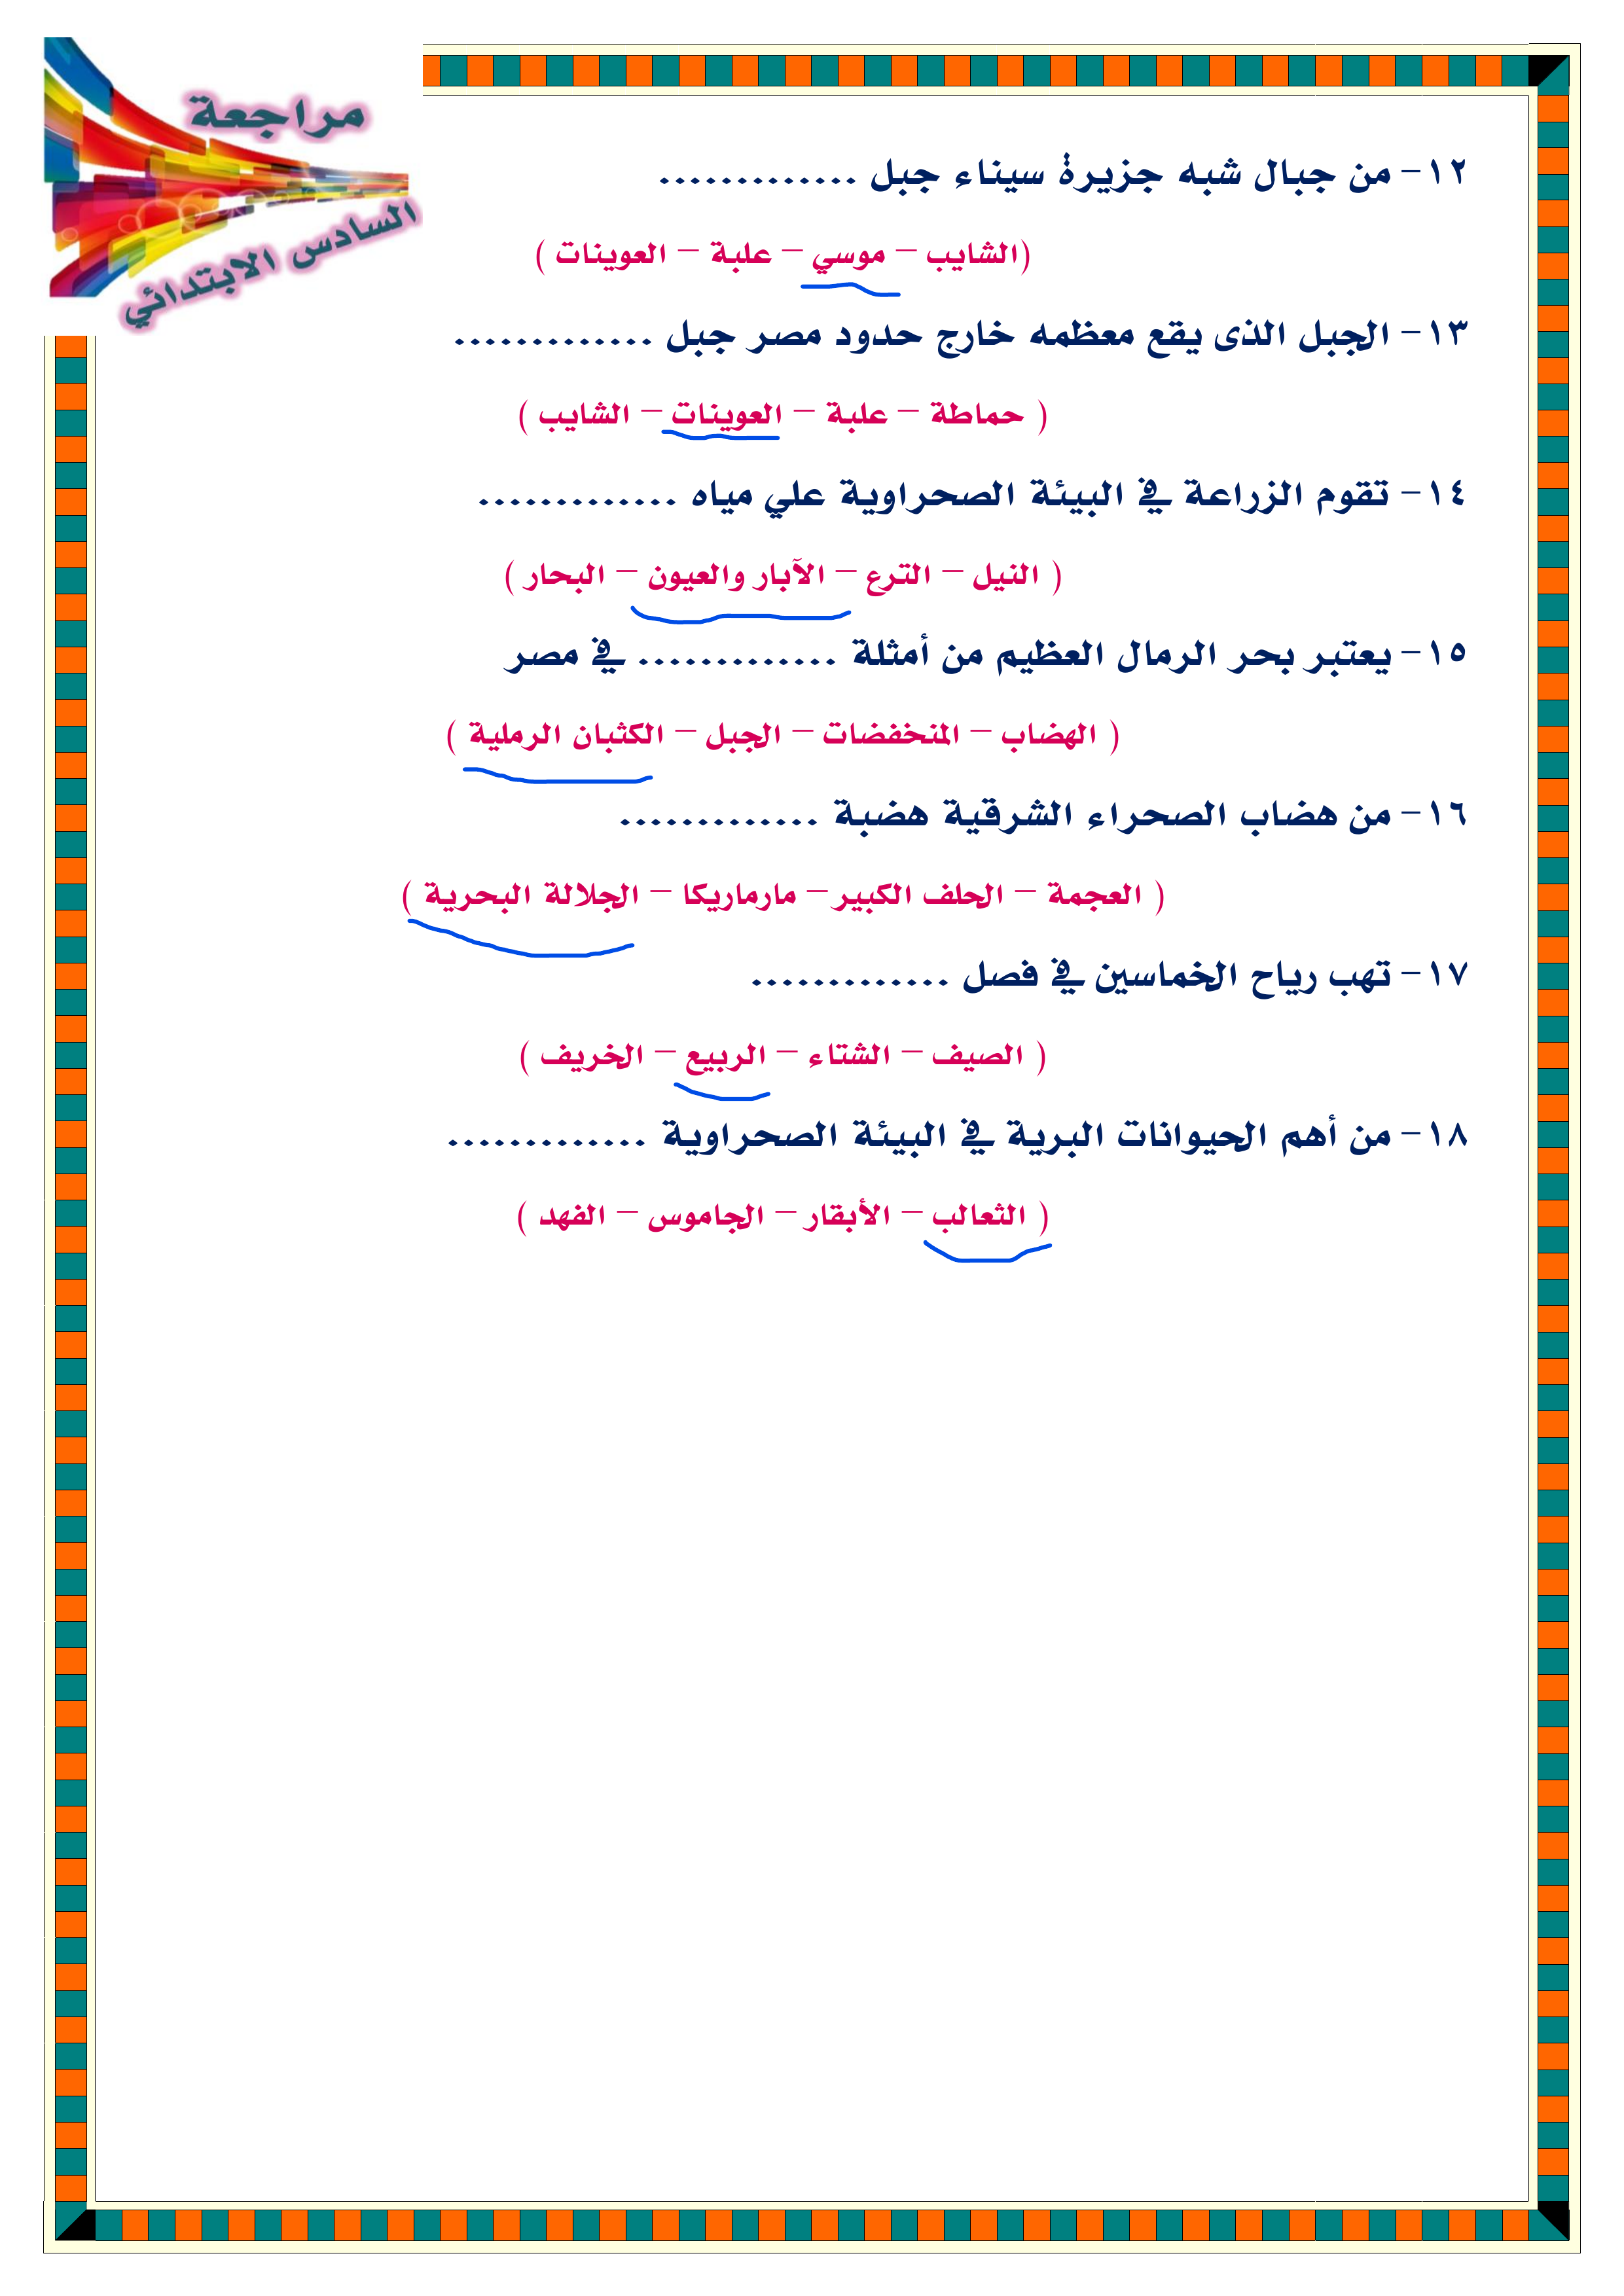 مراجعة
السادس الابتدائي
١٢- من جبال شبه جزيرة سيناء جبل .............
(الشايب – موسي – علبة – العوينات )
١٣- الجبل الذى يقع معظمه خارج حدود مصر جبل .............
( حماطة – علبة – العوينات – الشايب )
١٤- تقوم الزراعة في البيئة الصحراوية علي مياه .............
( النيل – الترع – الآبار والعيون – البحار )
١٥- يعتبر بحر الرمال العظيم من أمثلة ............. في مصر
( الهضاب – المنخفضات – الجبل – الكثبان الرملية )
١٦- من هضاب الصحراء الشرقية هضبة .............
( العجمة – الحلف الكبير – مارماريكا – الجلالة البحرية )
١٧- تهب رياح الخماسين في فصل .............
( الصيف – الشتاء – الربيع – الخريف )
١٨- من أهم الحيوانات البرية في البيئة الصحراوية .............
( الثعالب – الأبقار – الجاموس – الفهد )